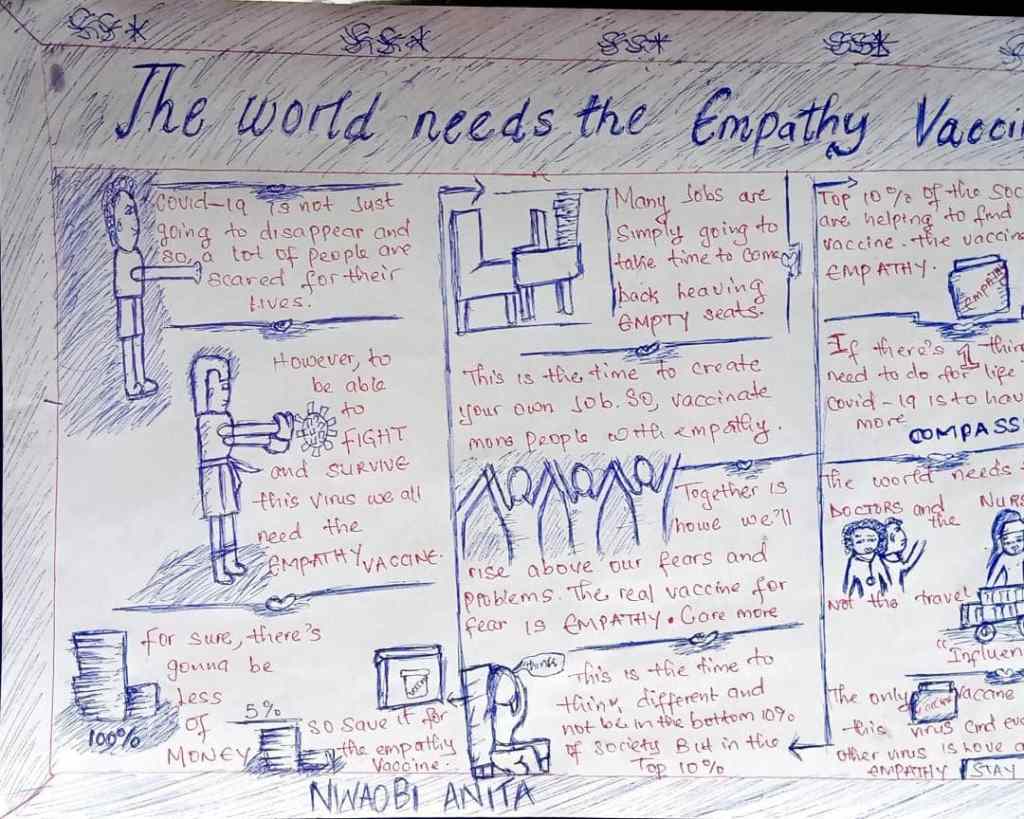 The world needs the Empathy Vacci
Covid-19 is not Just
going to disappear and
so, a lot of people are
scared for their
lives.
However, to
be able
to
FIGHT
and SURVIVE
this virus we all
need the
EMPATHY VACCINE.
for sure, there's
gonna be
Less
OF
MONEY
100%
5%
so save it for
the empathy
Vaccine.
Many Jobs are
Simply going to
take time to come
back heaving
EMPTY seats.
This is the time to create
your own Job. So, vaccinate
more people with empathy.
Together is
howe we'll
rise above our fears and
problems. The real vaccine for
fear is EMPATHY. Care more
think
This is the time to
thing different and
not be in the bottom 10%
of society But in the
Top 10%
Top 10% of the Soc
are helping to find
vaccine. the vaccin
EMPATHY.
Empathy
If there's 1 thin
need to do for life
covid-19 is to hav
more COMPASS
The world needs
DOCTORS and the NURS
Not the travel
"Influen
The only vaccine
this virus and eve
other virus is have a
EMPATHY STAY
NWAOBI ANITA